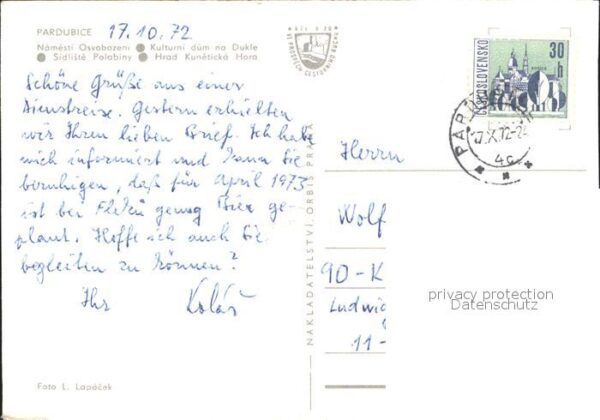 PARDUBICE
17.10.72
Náměstí Osvobození ● Kulturní dům na Dukle
● Sídliště Polabiny ● Hrad Kunětická Hora
Schöne Grüße aus einer
Dienstreise. Gestern erhielten
wir Ihren lieben Brief. Ich habe
mich informiert und kann Sie
beruhigen, daß für April 1973
ist bei Fleků genug Bier ge-
plant. Hoffe ich auch Sie
begleiten zu können?
Ihr Kolář
Foto L. Lapáček
NAKLADATELSTVÍ ORBIS PRAHA
ČESKOSLOVENSKO
30
h
17.X.72-2
4c
Herrn
Wolf
90-K
Ludwig
11-
privacy protection
Datenschutz